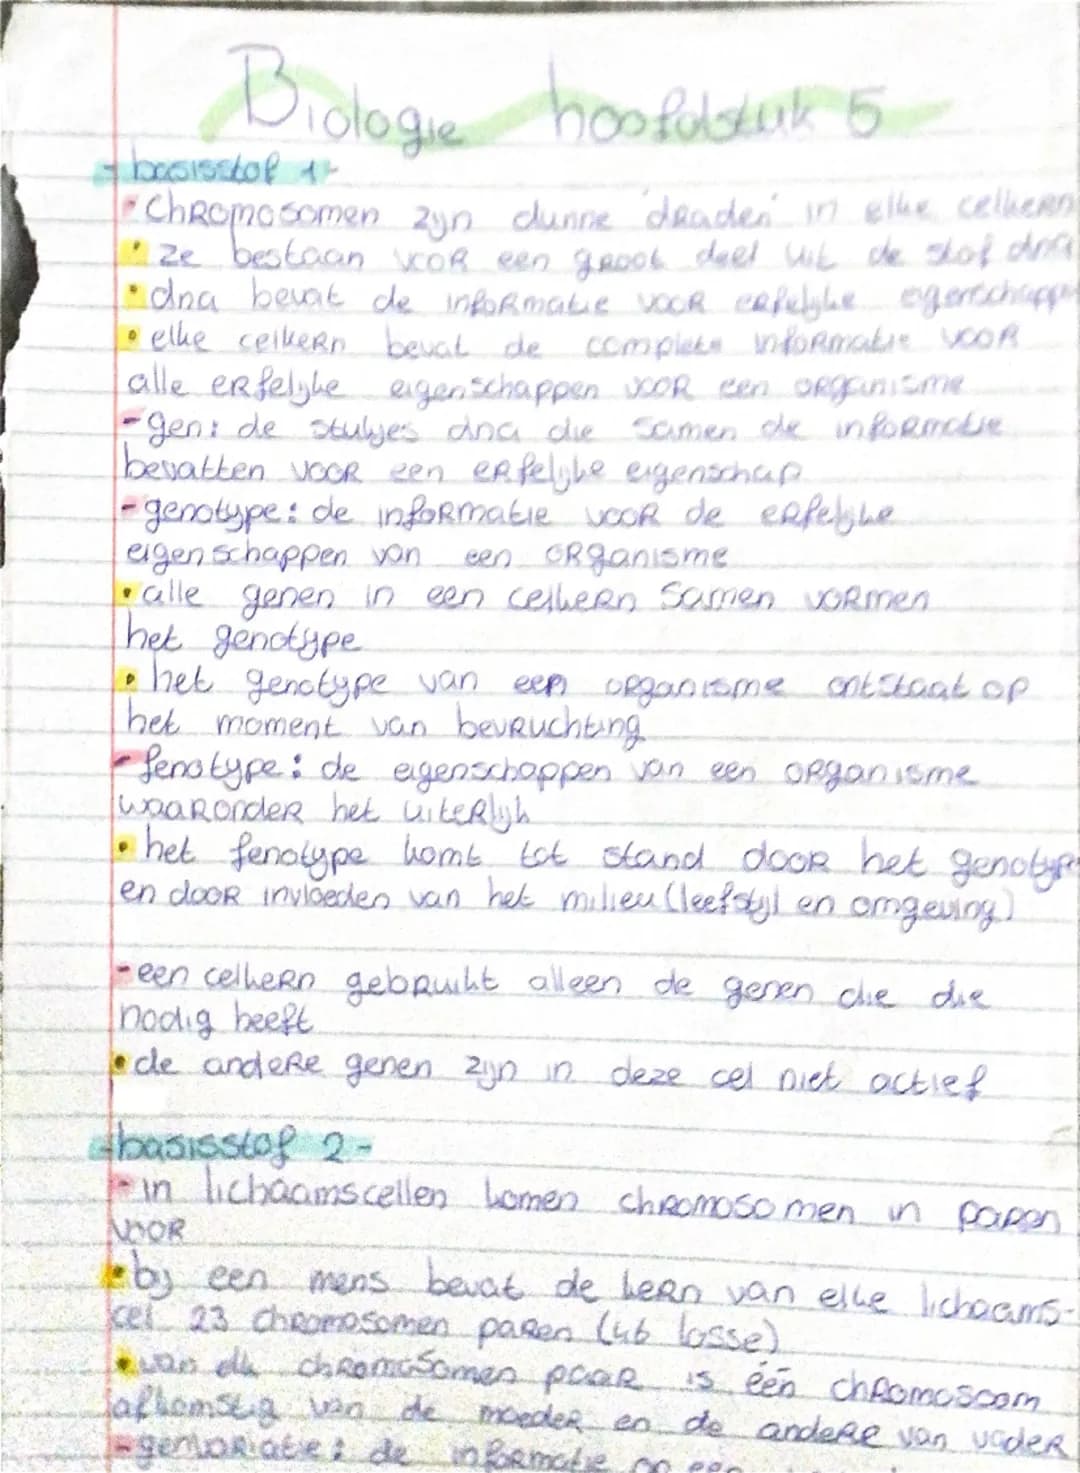 Biologie hoofdstuk 5
- basisstof 1 -
- Chromosomen zijn dunne 'draden' in elke celkern
• Ze bestaan voor een groot deel uit de stof dna
• dna bevat de informatie voor erfelijke eigenschappe
• elke celkern bevat de complete informatie voor
alle erfelijke eigenschappen voor een organisme
- gen: de stukjes dna die samen de informatie
bevatten voor een erfelijke eigenschap
- genotype: de informatie voor de erfelijke
eigenschappen van een organisme
• alle genen in een celkern samen vormen
het genotype
• het genotype van een organisme ontstaat op
het moment van bevruchting
- fenotype: de eigenschappen van een organisme
waaronder het uiterlijk
• het fenotype komt tot stand door het genotype
en door invloeden van het milieu (leefstijl en omgeving)
- een celkern gebruikt alleen de genen die die
nodig heeft
• de andere genen zijn in deze cel niet actief
- basisstof 2 -
- in lichaamscellen komen chromosomen in paren
voor
• bij een mens bevat de kern van elke lichaams-
cel 23 chromosomen paren (46 losse)
• van elk chromosomen paar is één chromosoom
afkomstig van de moeder en de andere van vader
- de informatie